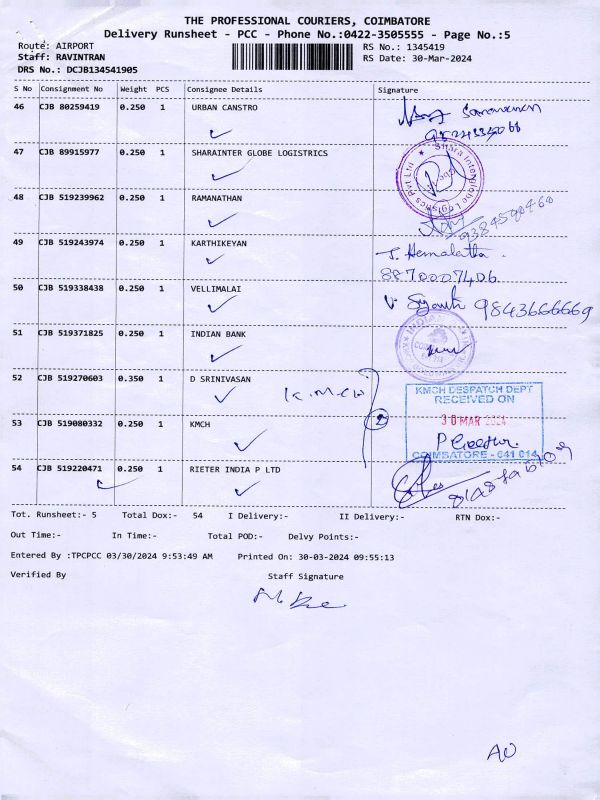 THE PROFESSIONAL COURIERS, COIMBATORE
Delivery Runsheet - PCC - Phone No.:0422-3505555 - Page No.:5
Route: AIRPORT
RS No.: 1345419
Staff: RAVINTRAN
RS Date: 30-Mar-2024
DRS No.: DCJB134541905
S No Consignment No Weight PCS Consignee Details Signature
46 CJB 80259419 0.250 1 URBAN CANSTRO
47 CJB 89915977 0.250 1 SHARAINTER GLOBE LOGISTRICS
48 CJB 519239962 0.250 1 RAMANATHAN
49 CJB 519243974 0.250 1 KARTHIKEYAN J. Hemalatha
8870007406
50 CJB 519338438 0.250 1 VELLIMALAI 9843666669
51 CJB 519371825 0.250 1 INDIAN BANK
52 CJB 519270603 0.350 1 D SRINIVASAN K.M.C.H
KMCH DESPATCH DEPT
RECEIVED ON
30 MAR 2024
53 CJB 519080332 0.250 1 KMCH 2
COIMBATORE - 641 014
54 CJB 519220471 0.250 1 RIETER INDIA P LTD
Tot. Runsheet:- 5 Total Dox:- 54 I Delivery:- II Delivery:- RTN Dox:-
Out Time:- In Time:- Total POD:- Delvy Points:-
Entered By :TPCPCC 03/30/2024 9:53:49 AM Printed On: 30-03-2024 09:55:13
Verified By Staff Signature